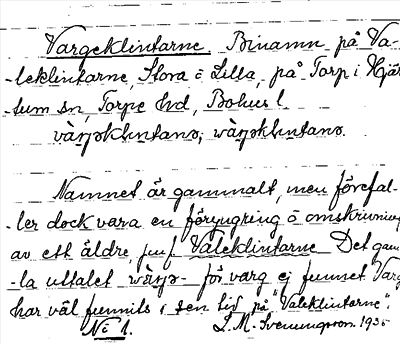 Vargeklintarne Binamn på Va-
-leklintarne, Stora o Lilla, på Torp i Hjär
-tum sn, Torpe hd, Bohusl
Namnet är gammalt, men förefal-
-ler dock vara en föryngring o omskrivning
av ett äldre, jmf Valeklintarne Det gam
-la uttalet för varg ej funnet Varg
har väl funnits i den tid på "Valeklintarne".
No 1. L.M. Svenungsson. 193